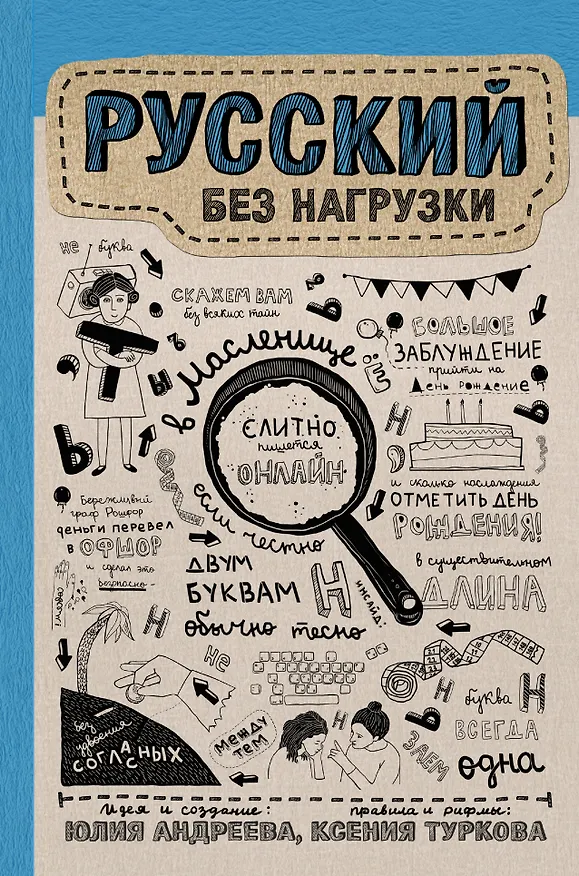 РУССКИЙ
БЕЗ НАГРУЗКИ
не буква
СКАЖЕМ ВАМ
без всяких тайн
в Масленице
СЛИТНО
пишется
ОНЛАЙН
БОЛЬШОЕ
ЗАБЛУЖДЕНИЕ
прийти на
День рождение
и сколько наслаждения
ОТМЕТИТЬ ДЕНЬ
РОЖДЕНИЯ!
Бережливый
граф Рошфор
деньги перевел
в ОФШОР
и сделал это
безопасно -
если честно
ДВУМ
БУКВАМ Н
обычно тесно
ИНСАЙД:
в существительном
ДЛИНА
буква Н
ВСЕГДА
одна
не
без
удвоения
СОГЛАСНЫХ
МЕЖДУ
ТЕМ
ЗАЕМ
Идея и создание:
правила и рифмы:
ЮЛИЯ АНДРЕЕВА, КСЕНИЯ ТУРКОВА